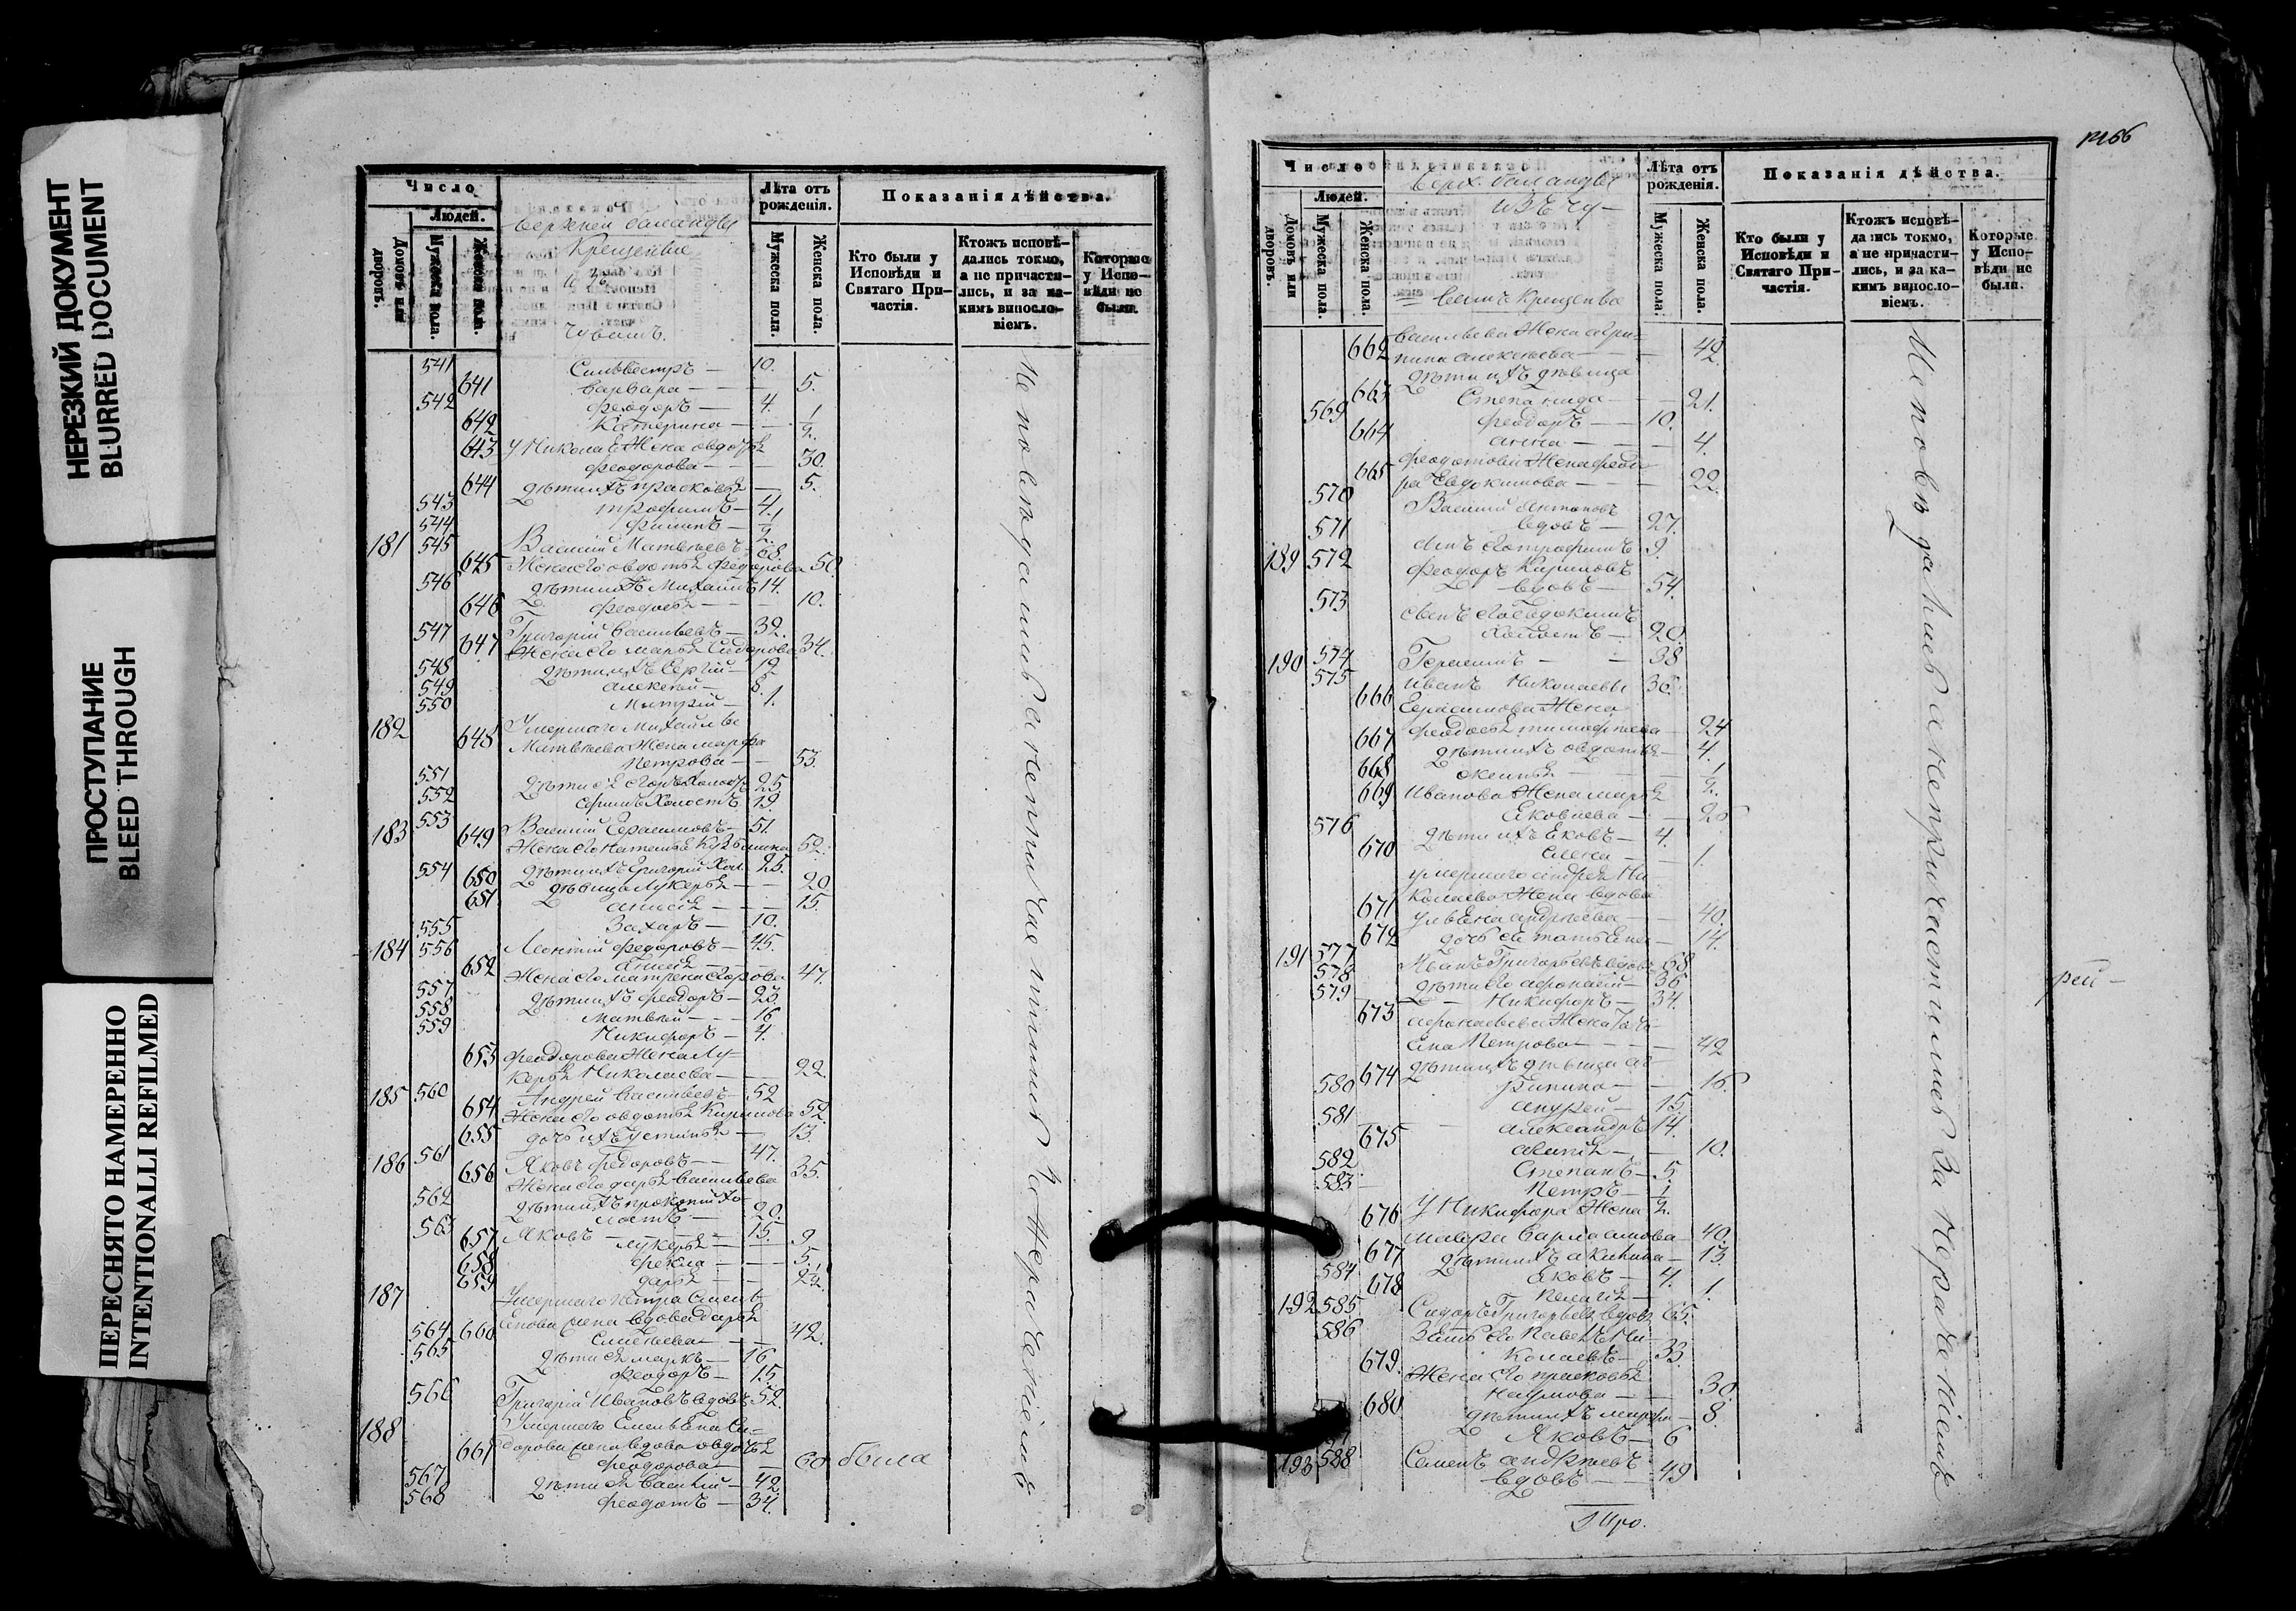 НЕРЕЗКИЙ ДОКУМЕНТ
BLURRED DOCUMENT
ПРОСТУПАНИЕ
BLEED THROUGH
ПЕРЕСНЯТО НАМЕРЕННО
INTENTIONALLI REFILMED
Число
Людей.
Домовъ или дворовъ.
Мужеска пола.
Женска пола.
Верхней Баланды
Крещеные
изъ
чувашъ.
Лѣта отъ рожденія.
Мужеска пола.
Женска пола.
Показанія дѣйства.
Кто были у Исповѣди и Святаго Причастія.
Ктожъ исповѣдались токмо, а не причастились, и за какимъ винословіемъ.
Которые у Исповѣди не были.
541 Сильвестръ — 10.
641 Варвара — 5.
542 Феодоръ — 4.
642 Катерина — 1/2.
643 У Николая Жена Овдотья
Феодорова — 30.
644 Дѣти ихъ Прасковья — 5.
543 Трофимъ — 4.
544 Филипъ — 1/2.
181 545 Василий Матвѣевъ — 68.
645 Жена его Овдотья Федорова 50.
546 Дѣти ихъ Михаилъ 14.
646 Феодосья — 10.
547 Григорий Васильевъ — 32.
647 Жена его Марья Сидорова 34.
548 Дѣти ихъ Сергий — 12
549 Алексѣй — 8.
550 Митрий — 1.
182 Умершаго Михайлы
648 Матвѣева Жена Марфа
Петрова — 53.
551 25
552 Ефимъ Холостъ 19.
183 553 Василий Герасимовъ — 51.
649 Жена его Наталья Кузьмина 52.
554 Дѣти ихъ Григорий Хол. 25.
650 Дѣвица Лукерья — 20
651 Анисья — 15.
555 Захаръ — 10.
184 556 Леонтий Федоровъ — 45.
652 Жена его Матрена Егорова 47.
557 Дѣти ихъ Феодоръ — 23.
558 Матвѣй — 16
559 Никифоръ — 4.
653 Феодорова Жена Лу-
керья Николаева — 22.
185 560 Андрей Васильевъ — 52
654 Жена его Овдотья Кирилова 52.
655 Дочь ихъ Устинья — 13.
186 561 Яковъ Федоровъ — 47.
656 Жена его Дарья Васильева 35.
562 Дѣти ихъ Прокопий Хо-
лостъ — 20.
563 Яковъ — 15.
657 Лукерья — 9
658 Фекла — 5.
659 Дарья — 2 1/2.
187 Умершаго Петра
660 жена вдова Дарья
— 42.
564
565 Дѣти ея Маркъ — 16
Феодоръ — 15.
566 Григорий Ивановъ вдовъ 52.
188 Умершаго Емельяна Си-
661 дорова жена вдова Овдотья
Феодорова — 60 была
567 Дѣти ея Василий — 42.
568 Феодотъ — 34.
Исповѣдались а не причастились за нераченіемъ
1466
Число
Людей.
Домовъ или дворовъ.
Мужеска пола.
Женска пола.
Верх. Баланды
изъ чу-
= вашъ Крещеные
Лѣта отъ рожденія.
Мужеска пола.
Женска пола.
Показанія дѣйства.
Кто были у Исповѣди и Святаго Причастія.
Ктожъ исповѣдались токмо, а не причастились, и за какимъ винословіемъ.
Которые у Исповѣди не были.
Васильева Жена Агри-
662 пина Алексѣева — 42.
Дѣти ихъ дѣвица
663 Степанида — 21.
569 Феодоръ — 10.
664 Анна — 4.
Феодотова Жена
665 Евдокимова — 22.
570 Василий Антоновъ
вдовъ — 27.
571 Сынъ его Трофимъ 9.
189 572 Феодоръ Кириловъ
вдовъ — 54.
573 Сынъ его Евдокимъ
Холостъ — 20.
190 574 Герасимъ — 38
575 Иванъ Николаевы 36.
666 Герасимова Жена
Феодосья Тимофеева — 24
667 Дѣти ихъ Овдотья — 4.
668 — 1/2.
669 Иванова Жена Марья
Яковлева — 26
576 Дѣти ихъ Яковъ — 4.
670 — 1.
Умершаго Андрея Ни-
колаева Жена вдова
671 Ульяна Андрѣева — 40.
672 Дочь ея Татьяна — 14.
191 577 Иванъ Григорьевъ вдовъ 68
578 Дѣти его Афонасий — 36
579 Никифоръ — 34.
673 Афонасьева Жена Тать-
яна Петрова — 42
Дѣти ихъ дѣвица Аг-
674 рипина — 16
580 Андрей — 15
581 Александръ 14.
675 — 10.
582 Степанъ — 5.
583 Петръ — 1/2.
676 У Никифора Жена
Мавра Варламова — 40.
677 Дѣти ихъ Акилина — 13.
584 Яковъ — 4.
678 Пелагея — 1.
192 585 Сидоръ Григорьевъ вдовъ 65.
586 Зять его Павелъ Ни-
колаевъ — 33
679. Жена его Прасковья
Наумова — 30
680 Дѣти ихъ — 8.
Яковъ — 6
193 588 Семенъ Андрѣевъ
вдовъ — 49
Исповѣдались а не причастились за нераченіемъ
рей —